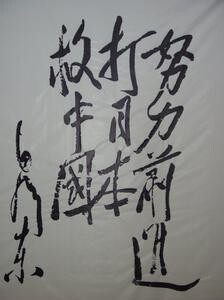 努力前进
打日本
救中國
毛泽东